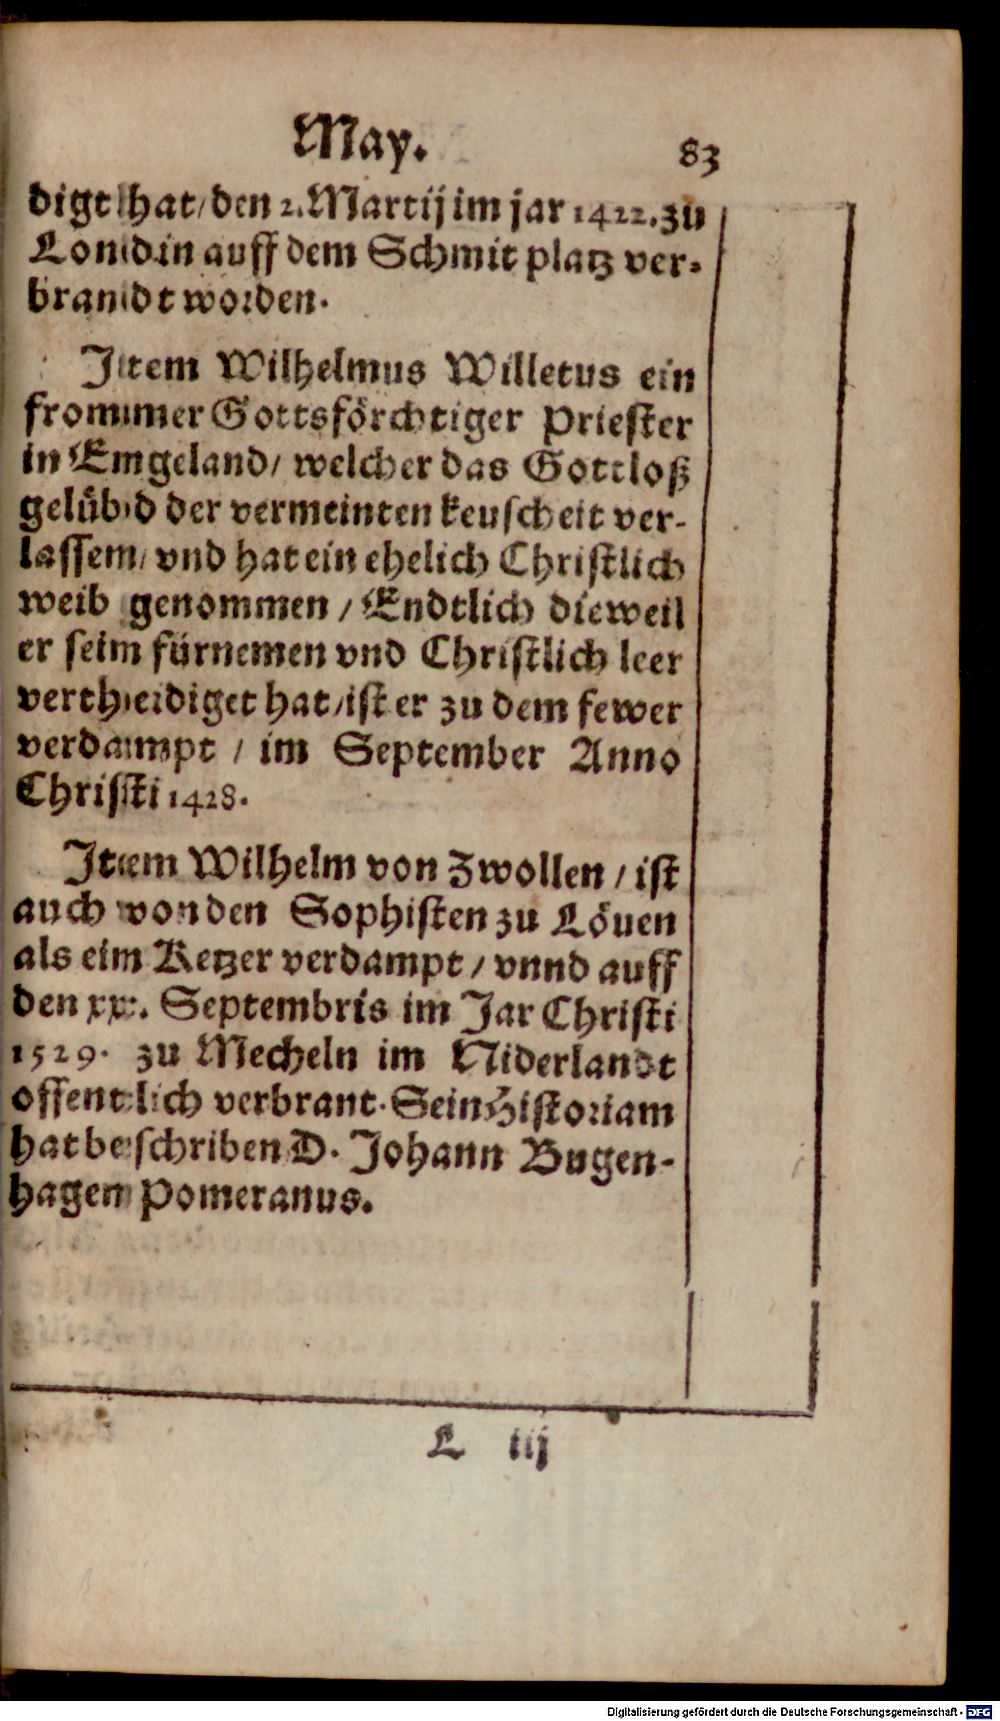 May. 83
digt hat/ den 2. Martij im jar 1422. zů
Londin auff dem Schmit platz ver-
brandt worden.
Item Wilhelmus Willetus ein
frommer Gottsförchtiger Priester
in Engeland/ welcher das Gottloß
gelübd der vermeinten keuscheit ver-
lassen/ vnd hat ein ehelich Christlich
weib genommen / Endtlich dieweil
er sein fürnemen vnd Christlich leer
vertheidiget hat/ ist er zu dem fewer
verdampt / im September Anno
Christi 1428.
Item Wilhelm von Zwollen / ist
auch von den Sophisten zu Löuen
als ein Ketzer verdampt / vnnd auff
den xx. Septembris im Jar Christi
1529. zu Mecheln im Niderlandt
offentlich verbrant. Sein Historiam
hat beschriben D. Johann Bugen-
hagen Pomeranus.
L iij
Digitalisierung gefördert durch die Deutsche Forschungsgemeinschaft - DFG